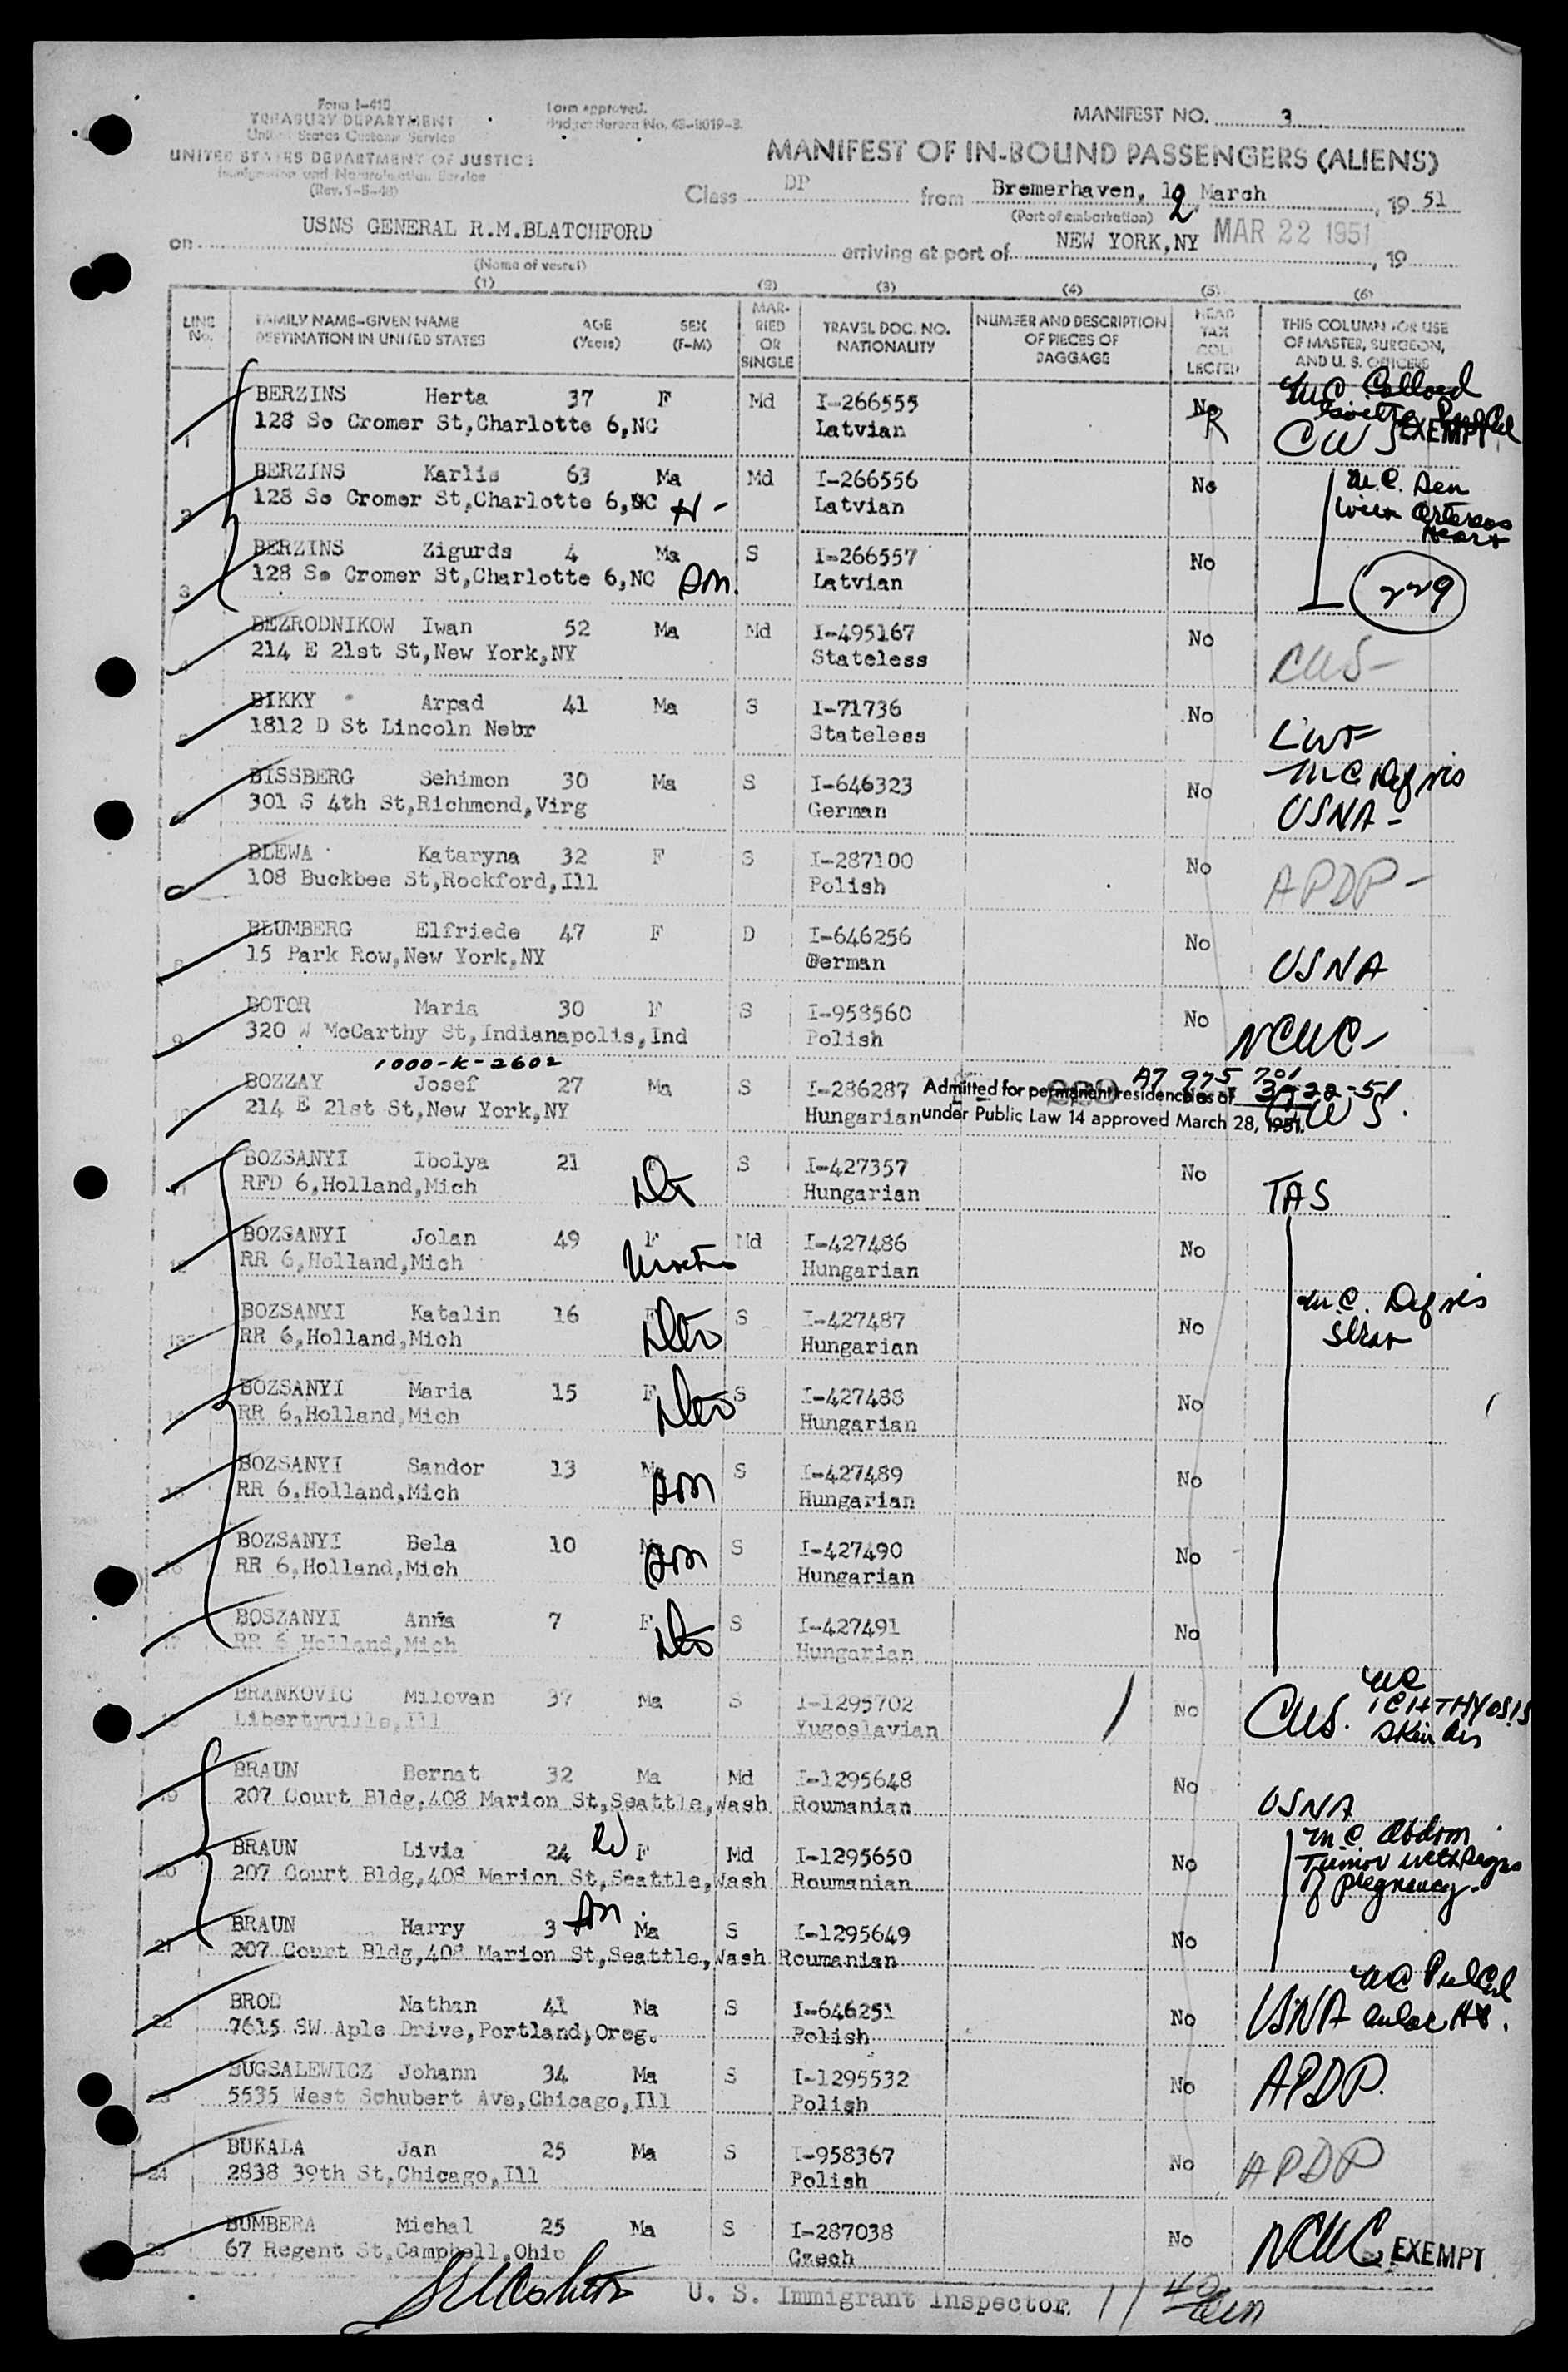 Form I-418
TREASURY DEPARTMENT
United States Customs Service
UNITED STATES DEPARTMENT OF JUSTICE
Immigration and Naturalization Service
(Rev. 1-5-48)
Form approved.
Budget Bureau No. 43-R019-3.
MANIFEST NO. 3
MANIFEST OF IN-BOUND PASSENGERS (ALIENS)
Class DP from Bremerhaven, 12 March, 19 51
(Port of embarkation)
on USNS GENERAL R.M.BLATCHFORD arriving at port of NEW YORK,NY MAR 22 1951, 19
(Name of vessel)
(1) (2) (3) (4) (5) (6)
LINE No.
FAMILY NAME-GIVEN NAME DESTINATION IN UNITED STATES
AGE (Years)
SEX (F-M)
MARRIED OR SINGLE
TRAVEL DOC. NO. NATIONALITY
NUMBER AND DESCRIPTION OF PIECES OF BAGGAGE
HEAD TAX COLLECTED
THIS COLUMN FOR USE OF MASTER, SURGEON, AND U. S. OFFICERS
1 BERZINS Herta 37 F Md I-266555 No
128 So Cromer St,Charlotte 6,NC Latvian CWS EXEMPT
2 BERZINS Karlis 63 Ma Md I-266556 No M.C. Sen
128 So Cromer St,Charlotte 6,NC H- Latvian Heart
3 BERZINS Zigurds 4 Ma S I-266557 No
128 So Cromer St,Charlotte 6,NC Son. Latvian 229
4 BEZRODNIKOW Iwan 52 Ma Md I-495167 No
214 E 21st St,New York,NY Stateless CWS-
5 BIKKY Arpad 41 Ma S I-71736 No
1812 D St Lincoln Nebr Stateless LWF
6 BISSBERG Sehimon 30 Ma S I-646323 No MC Def vis
301 S 4th St,Richmond,Virg German USNA-
BLEWA Kataryna 32 F S I-287100 No
108 Buckbee St,Rockford,Ill Polish APDP-
8 BLUMBERG Elfriede 47 F D I-646256 No
15 Park Row,New York,NY German USNA
9 BOTOR Maria 30 F S I-958560 No
320 W McCarthy St,Indianapolis,Ind Polish NCWC-
1000-K-2602 A7 975 701
10 BOZZAY Josef 27 Ma S I-286287 Admitted for permanent residence as of 3-22-51
214 E 21st St,New York,NY Hungarian under Public Law 14 approved March 28, 1951. CWS.
11 BOZSANYI Ibolya 21 F S I-427357 No
RFD 6,Holland,Mich Hungarian TAS
12 BOZSANYI Jolan 49 F Md I-427486 No
RR 6,Holland,Mich Hungarian
13 BOZSANYI Katalin 16 F S I-427487 No M.C. Def vis
RR 6,Holland,Mich Hungarian
14 BOZSANYI Maria 15 F S I-427488 No
RR 6,Holland,Mich Hungarian
15 BOZSANYI Sandor 13 Ma S I-427489 No
RR 6,Holland,Mich Son Hungarian
16 BOZSANYI Bela 10 Ma S I-427490 No
RR 6,Holland,Mich Son Hungarian
17 BOSZANYI Anna 7 F S I-427491 No
RR 6 Holland,Mich Hungarian
18 BRANKOVIC Milovan 37 Ma S I-1295702 No MC ICHTHYOSIS
Libertyville,Ill Yugoslavian CWS. Skin dis
19 BRAUN Bernat 32 Ma Md I-1295648 No
207 Court Bldg,408 Marion St,Seattle,Wash Roumanian USNA
20 BRAUN Livia 24 W F Md I-1295650 No MC Abdom
207 Court Bldg,408 Marion St,Seattle,Wash Roumanian Tumor with signs of pregnancy.
21 BRAUN Harry 3 Son Ma S I-1295649 No
207 Court Bldg,408 Marion St,Seattle,Wash Roumanian
22 BROD Nathan 41 Ma S I-646251 No MC
7615 SW Aple Drive,Portland,Oreg. Polish USNA
23 BUGSALEWICZ Johann 34 Ma S I-1295532 No
5535 West Schubert Ave,Chicago,Ill Polish APDP.
24 BUKALA Jan 25 Ma S I-958367 No
2838 39th St,Chicago,Ill Polish APDP
25 BUMBERA Michal 25 Ma S I-287038 No
67 Regent St,Campbell,Ohio Czech NCWC EXEMPT
U. S. Immigrant Inspector